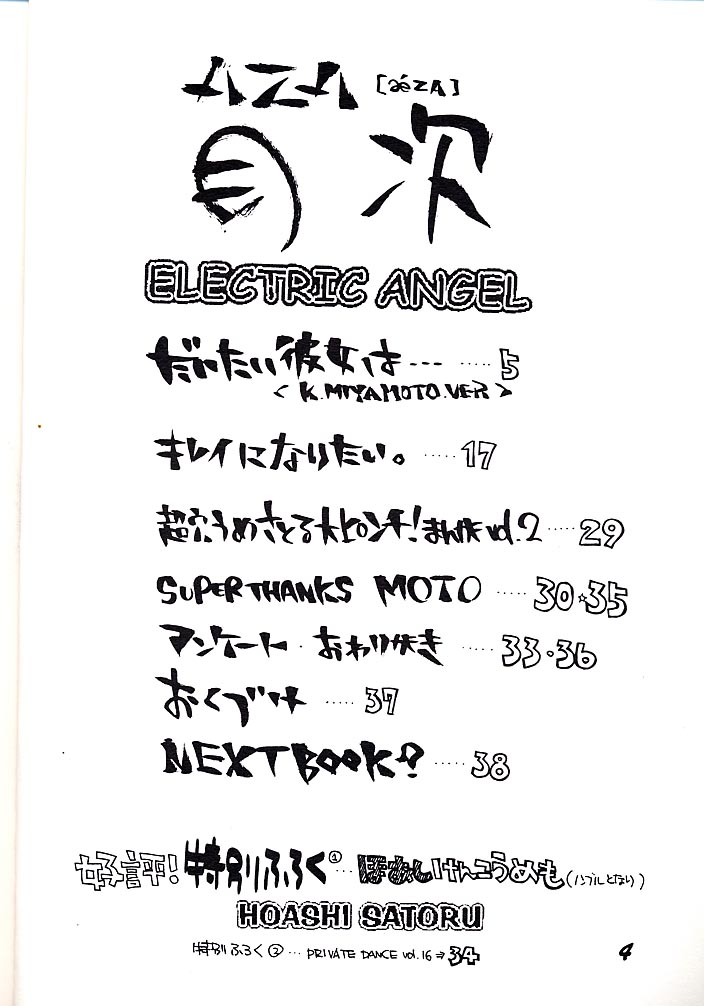 AZA [aéZA]
目次
ELECTRIC ANGEL
だいたい彼女は… ····· 5
< K.MIYAMOTO.VER >
キレイになりたい。 ····· 17
超穴うめさとる大ピンチ!まんが vol.2 ····· 29
SUPER THANKS MOTO ····· 30☆35
アンケート・おわり書き ····· 33・36
おくづけ ····· 37
NEXT BOOK? ····· 38
好評!特別ふろく① … ほあしけんこううめも(ノンブルとばし)
HOASHI SATORU
特別ふろく② … PRIVATE DANCE vol.16 ⇒ 34
4